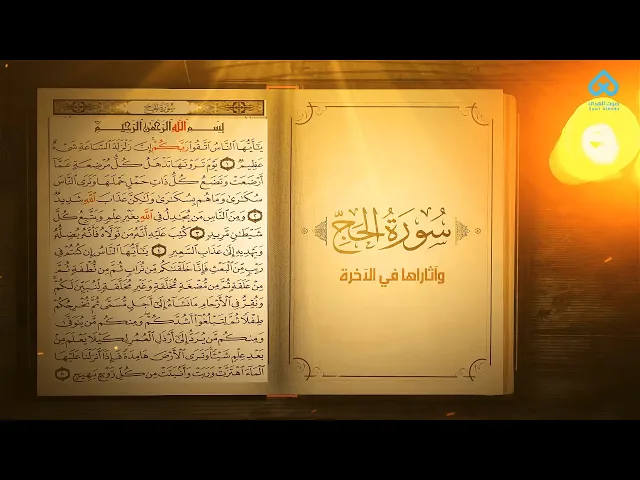 سورة الحج
بسم الله الرحمن الرحيم
يَٰٓأَيُّهَا ٱلنَّاسُ ٱتَّقُوا۟ رَبَّكُمْ إِنَّ زَلْزَلَةَ ٱلسَّاعَةِ شَىْءٌ
عَظِيمٌ ١ يَوْمَ تَرَوْنَهَا تَذْهَلُ كُلُّ مُرْضِعَةٍ عَمَّآ
أَرْضَعَتْ وَتَضَعُ كُلُّ ذَاتِ حَمْلٍ حَمْلَهَا وَتَرَى ٱلنَّاسَ
سُكَٰرَىٰ وَمَا هُم بِسُكَٰرَىٰ وَلَٰكِنَّ عَذَابَ ٱللَّهِ شَدِيدٌ
٢ وَمِنَ ٱلنَّاسِ مَن يُجَٰدِلُ فِى ٱللَّهِ بِغَيْرِ عِلْمٍ وَيَتَّبِعُ كُلَّ
شَيْطَٰنٍ مَّرِيدٍ ٣ كُتِبَ عَلَيْهِ أَنَّهُۥ مَن تَوَلَّاهُ فَأَنَّهُۥ يُضِلُّهُۥ
وَيَهْدِيهِ إِلَىٰ عَذَابِ ٱلسَّعِيرِ ٤ يَٰٓأَيُّهَا ٱلنَّاسُ إِن كُنتُمْ فِى
رَيْبٍ مِّنَ ٱلْبَعْثِ فَإِنَّا خَلَقْنَٰكُم مِّن تُرَابٍ ثُمَّ مِن نُّطْفَةٍ ثُمَّ
مِنْ عَلَقَةٍ ثُمَّ مِن مُّضْغَةٍ مُّخَلَّقَةٍ وَغَيْرِ مُخَلَّقَةٍ لِّنُبَيِّنَ لَكُمْ
وَنُقِرُّ فِى ٱلْأَرْحَامِ مَا نَشَآءُ إِلَىٰٓ أَجَلٍ مُّسَمًّى ثُمَّ نُخْرِجُكُمْ
طِفْلًا ثُمَّ لِتَبْلُغُوٓا۟ أَشُدَّكُمْ وَمِنكُم مَّن يُتَوَفَّىٰ
وَمِنكُم مَّن يُرَدُّ إِلَىٰٓ أَرْذَلِ ٱلْعُمُرِ لِكَيْلَا يَعْلَمَ مِنۢ
بَعْدِ عِلْمٍ شَيْـًٔا وَتَرَى ٱلْأَرْضَ هَامِدَةً فَإِذَآ أَنزَلْنَا عَلَيْهَا
ٱلْمَآءَ ٱهْتَزَّتْ وَرَبَتْ وَأَنۢبَتَتْ مِن كُلِّ زَوْجٍۭ بَهِيجٍ ٥
سُورَةُ الحَجّ
وآثاراها في الآخرة
صوت الهدى
Sawt Alhoda